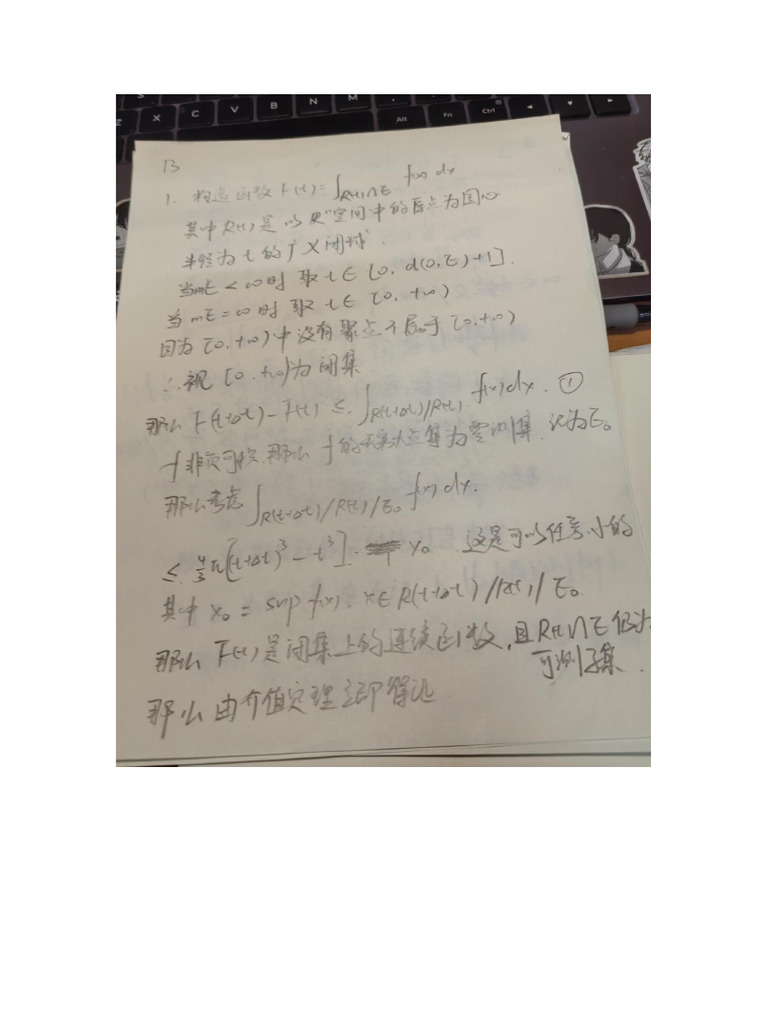 X C V B N M Alt Fn Ctrl
13
1. 构造函数 F(t) = ∫_{R(t)∩E} f(x) dx
其中 R(t) 是以 R^n 空间中的原点为圆心
半径为 t 的广义闭球.
当 mE < ∞ 时 取 t ∈ [0, d(0,E)+1].
当 mE = ∞ 时 取 t ∈ [0, +∞)
因为 [0, +∞) 中没有聚点不属于 [0,+∞)
∴ 视 [0, +∞) 为闭集
那么 F(t+Δt) - F(t) ≤ ∫_{R(t+Δt)//R(t)} f(x) dx. ①
f 非负可积, 那么 f 的无穷大点集为零测集, 记为 E₀
那么考虑 ∫_{R(t+Δt)//R(t)//E₀} f(x) dx.
≤ 4/3 π[(t+Δt)³ - t³]. y₀ . 这是可以任意小的
其中 y₀ = sup f(x). x ∈ R(t+Δt)//R(t)//E₀.
那么 F(t) 是闭集上的连续函数, 且 R(t)∩E 仍为
可测子集.
那么由介值定理立即得证